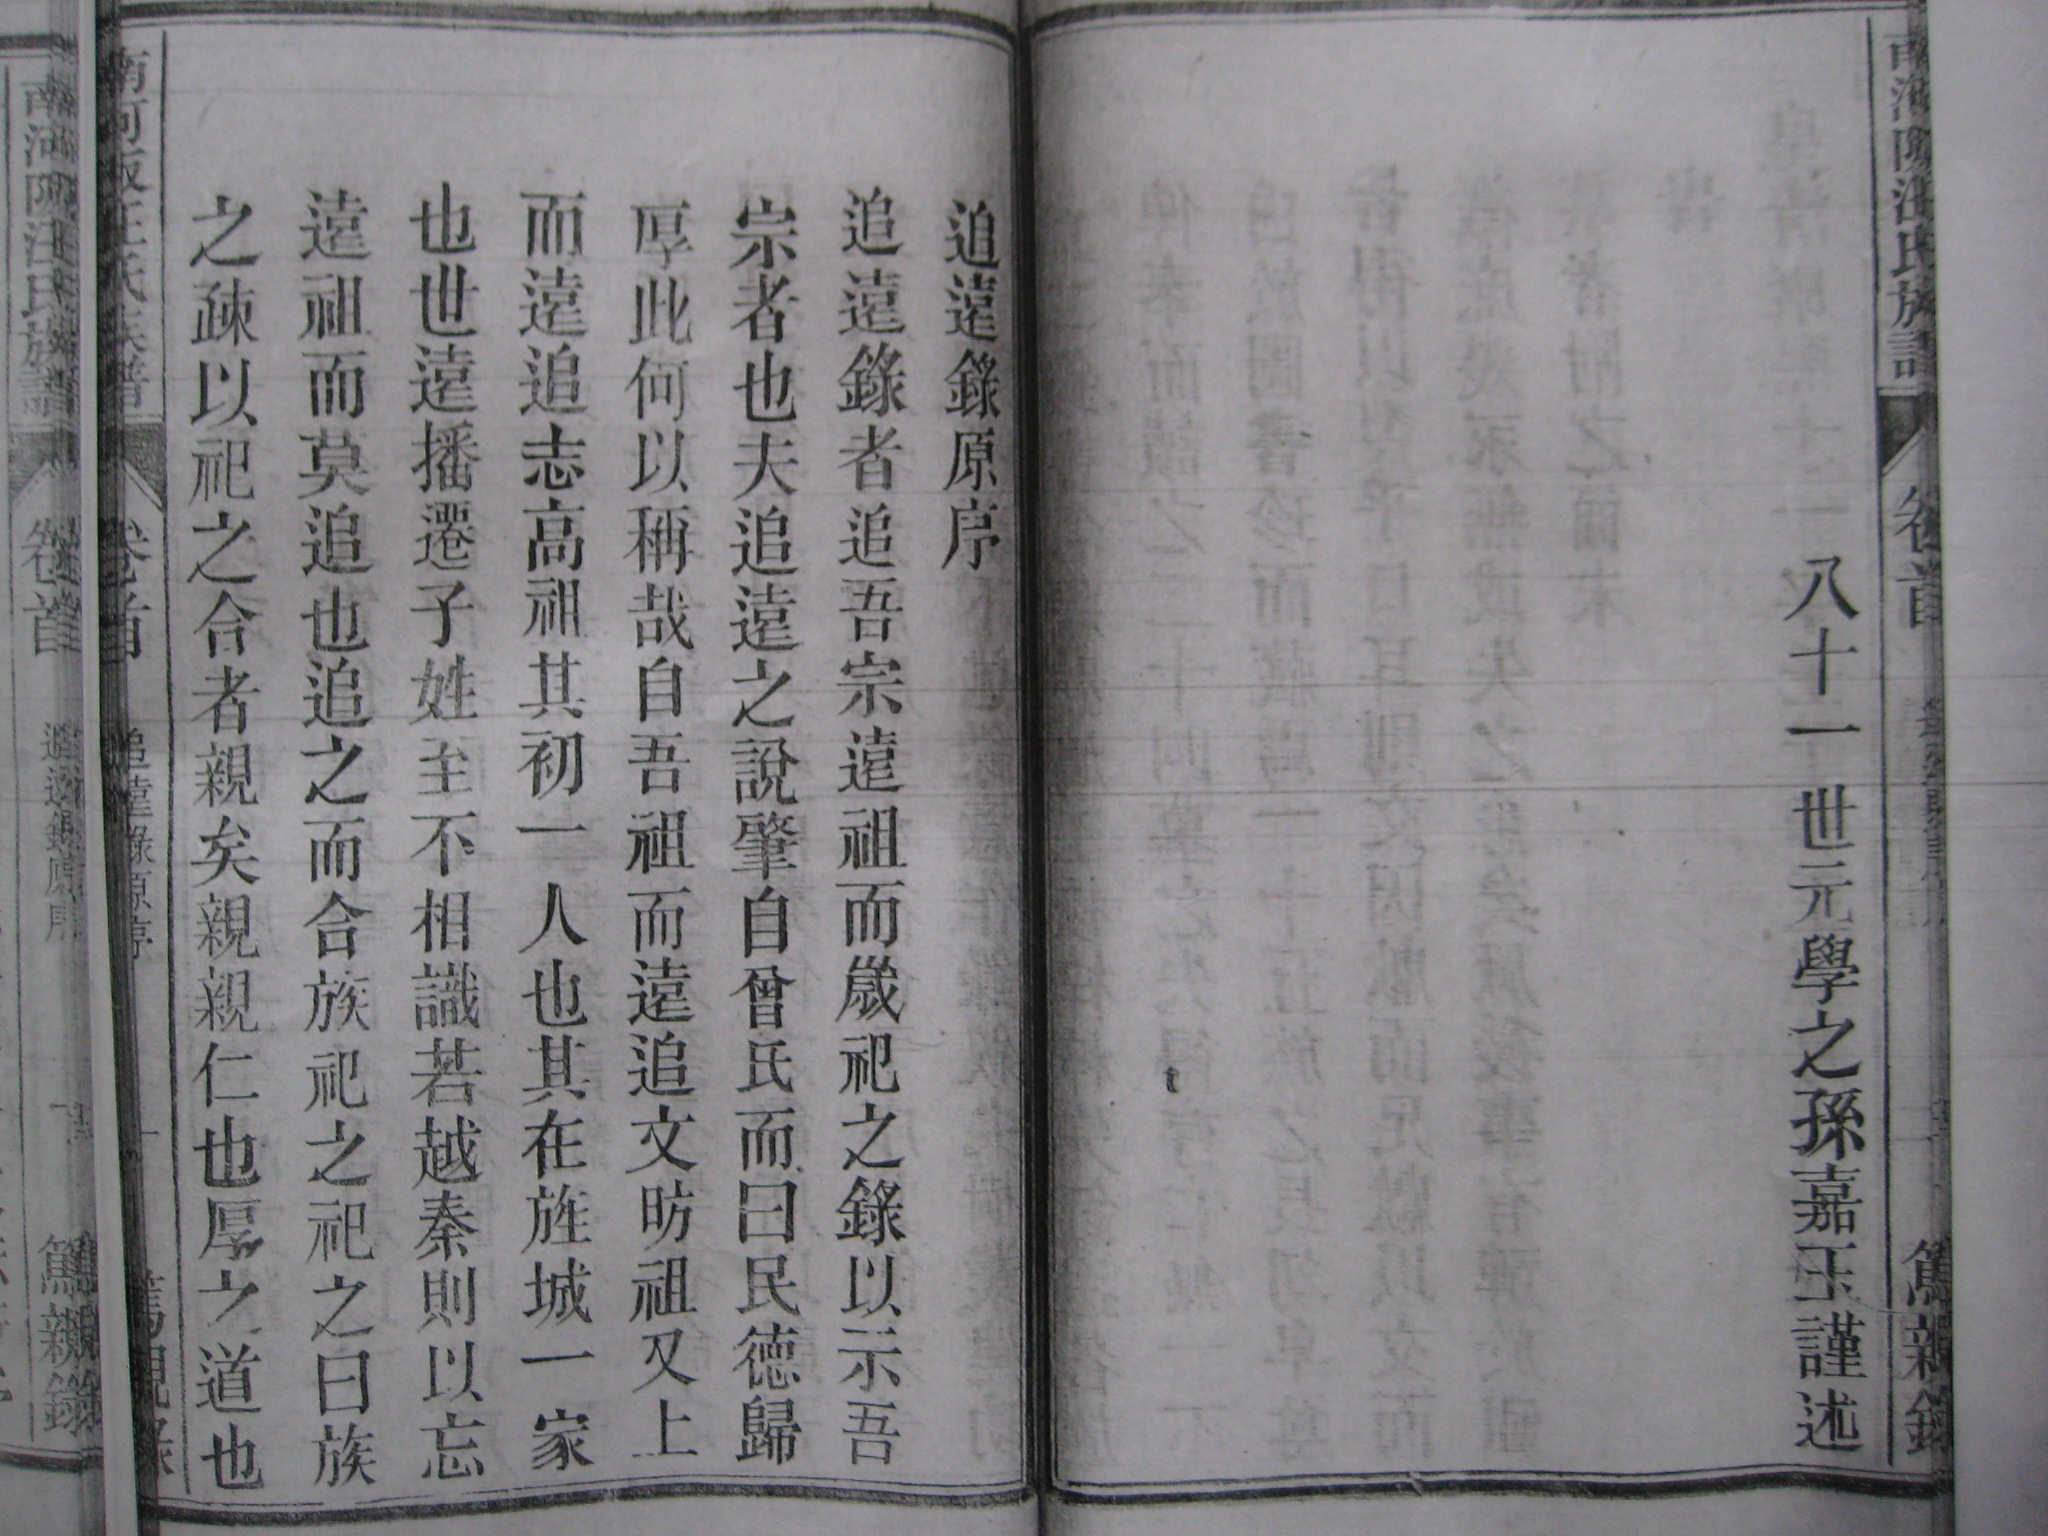 八十一世元學之孫嘉玉謹述
追遠錄原序
追遠錄者追吾宗遠祖而歲祀之錄以示吾
宗者也夫追遠之說肇自曾氏而曰民德歸
厚此何以稱哉自吾祖而遠追文昉祖又上
而遠追志高祖其初一人也其在旌城一家
也世遠播遷子姓至不相識若越秦則以忘
遠祖而莫追也追之而合族祀之祀之曰族
之疎以祀之合者親矣親親仁也厚之道也
卷首
追遠錄原序
一
卷首
追遠錄原序